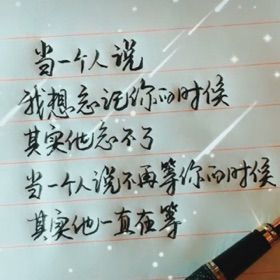 当一个人说
我想忘记你的时候
其实他忘不了
当一个人说不再等你的时候
其实他一直在等